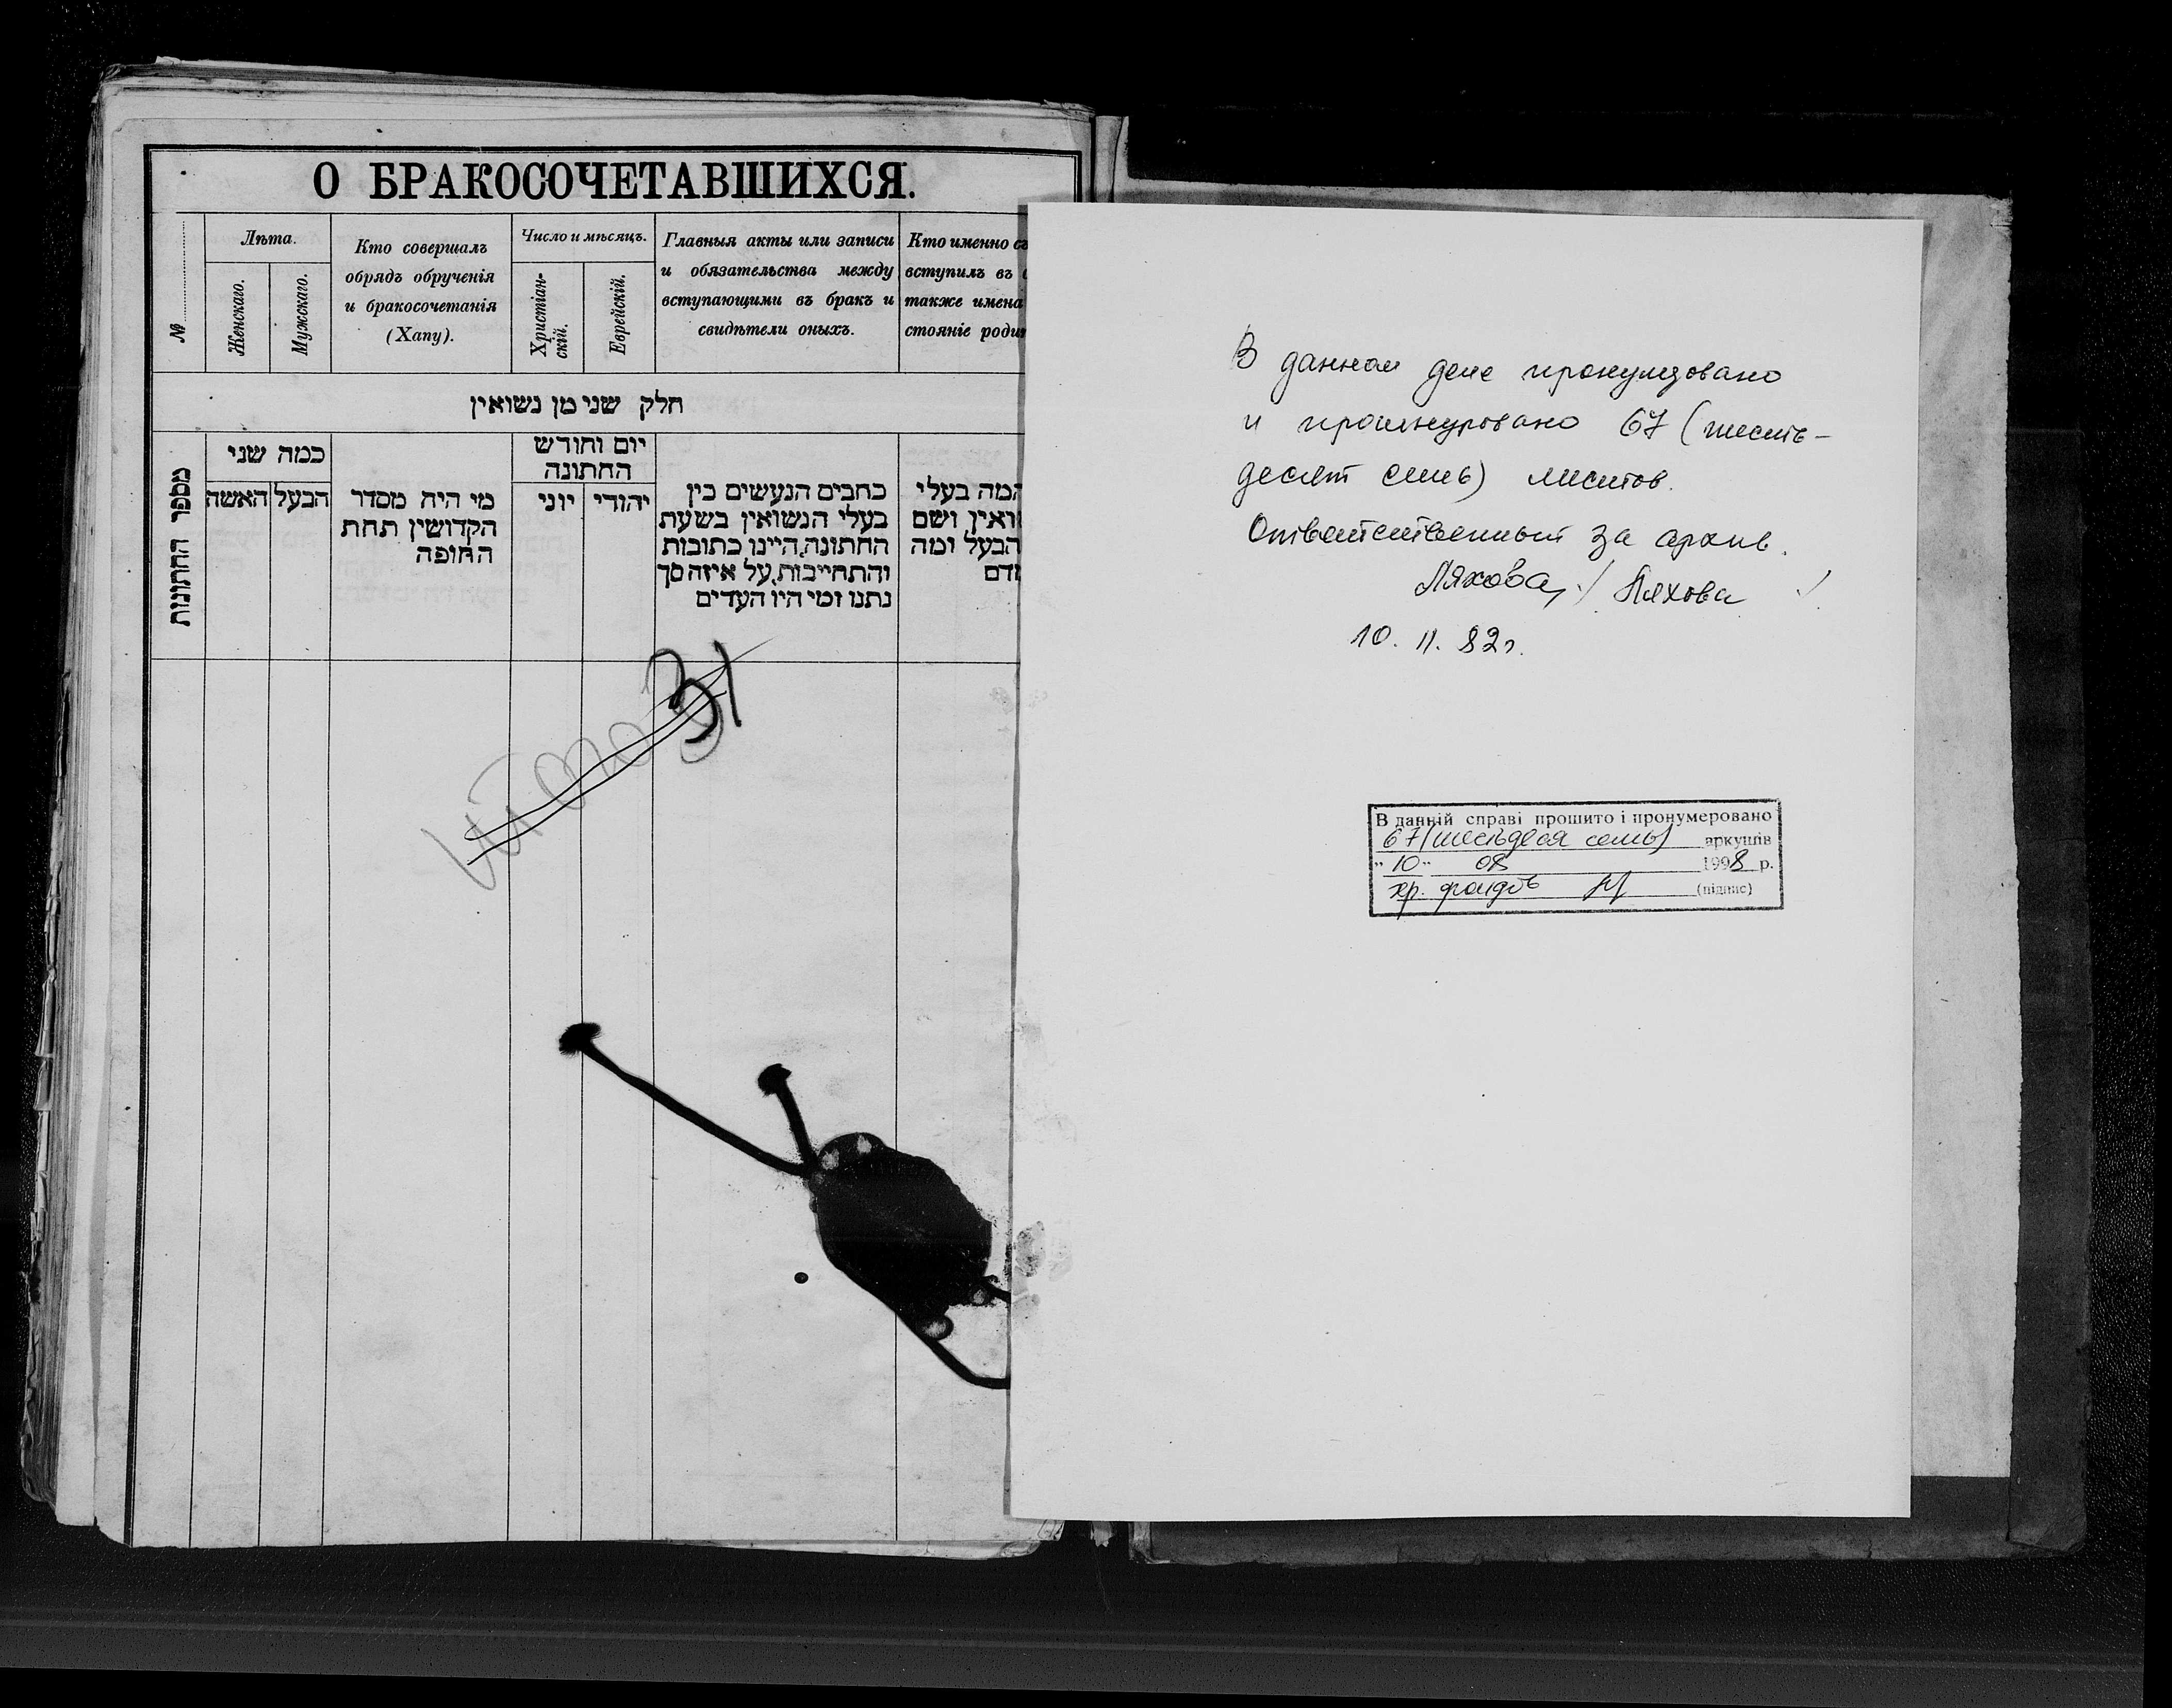 О БРАКОСОЧЕТАВШИХСЯ.
№
Лѣта.
Женскаго.
Мужскаго.
Кто совершалъ
обрядъ обрученія
и бракосочетанія
(Хапу).
Число и мѣсяцъ.
Христіан-
скій.
Еврейскій.
Главныя акты или записи
и обязательства между
вступающими въ бракъ и
свидѣтели оныхъ.
Кто именно съ
вступилъ въ
также имена
стояніе роди
חלק שני מן נשואין
מספר החתונות
כמה שני
הבעל
האשה
מי היה מסדר
הקדושין תחת
החופה
יום וחודש
החתונה
יהודי
יוני
כתבים הנעשים בין
בעלי הנשואין בשעת
החתונה, היינו כתובות
והתחייבות, על איזה סך
נתנו ומי היו העדים
המה בעלי
ואין ושם
הבעל ומה
דם
итого 31
В данном деле пронумеровано
и прошнуровано 67 (шесть-
десят семь) листов.
Ответственный за архив.
Ляхова / Ляхова /
10. II. 82 г.
В данній справі прошито і пронумеровано
67 (шестьдеся семь) аркушів
"10" 08 1998 р.
хр. фондов (підпис)